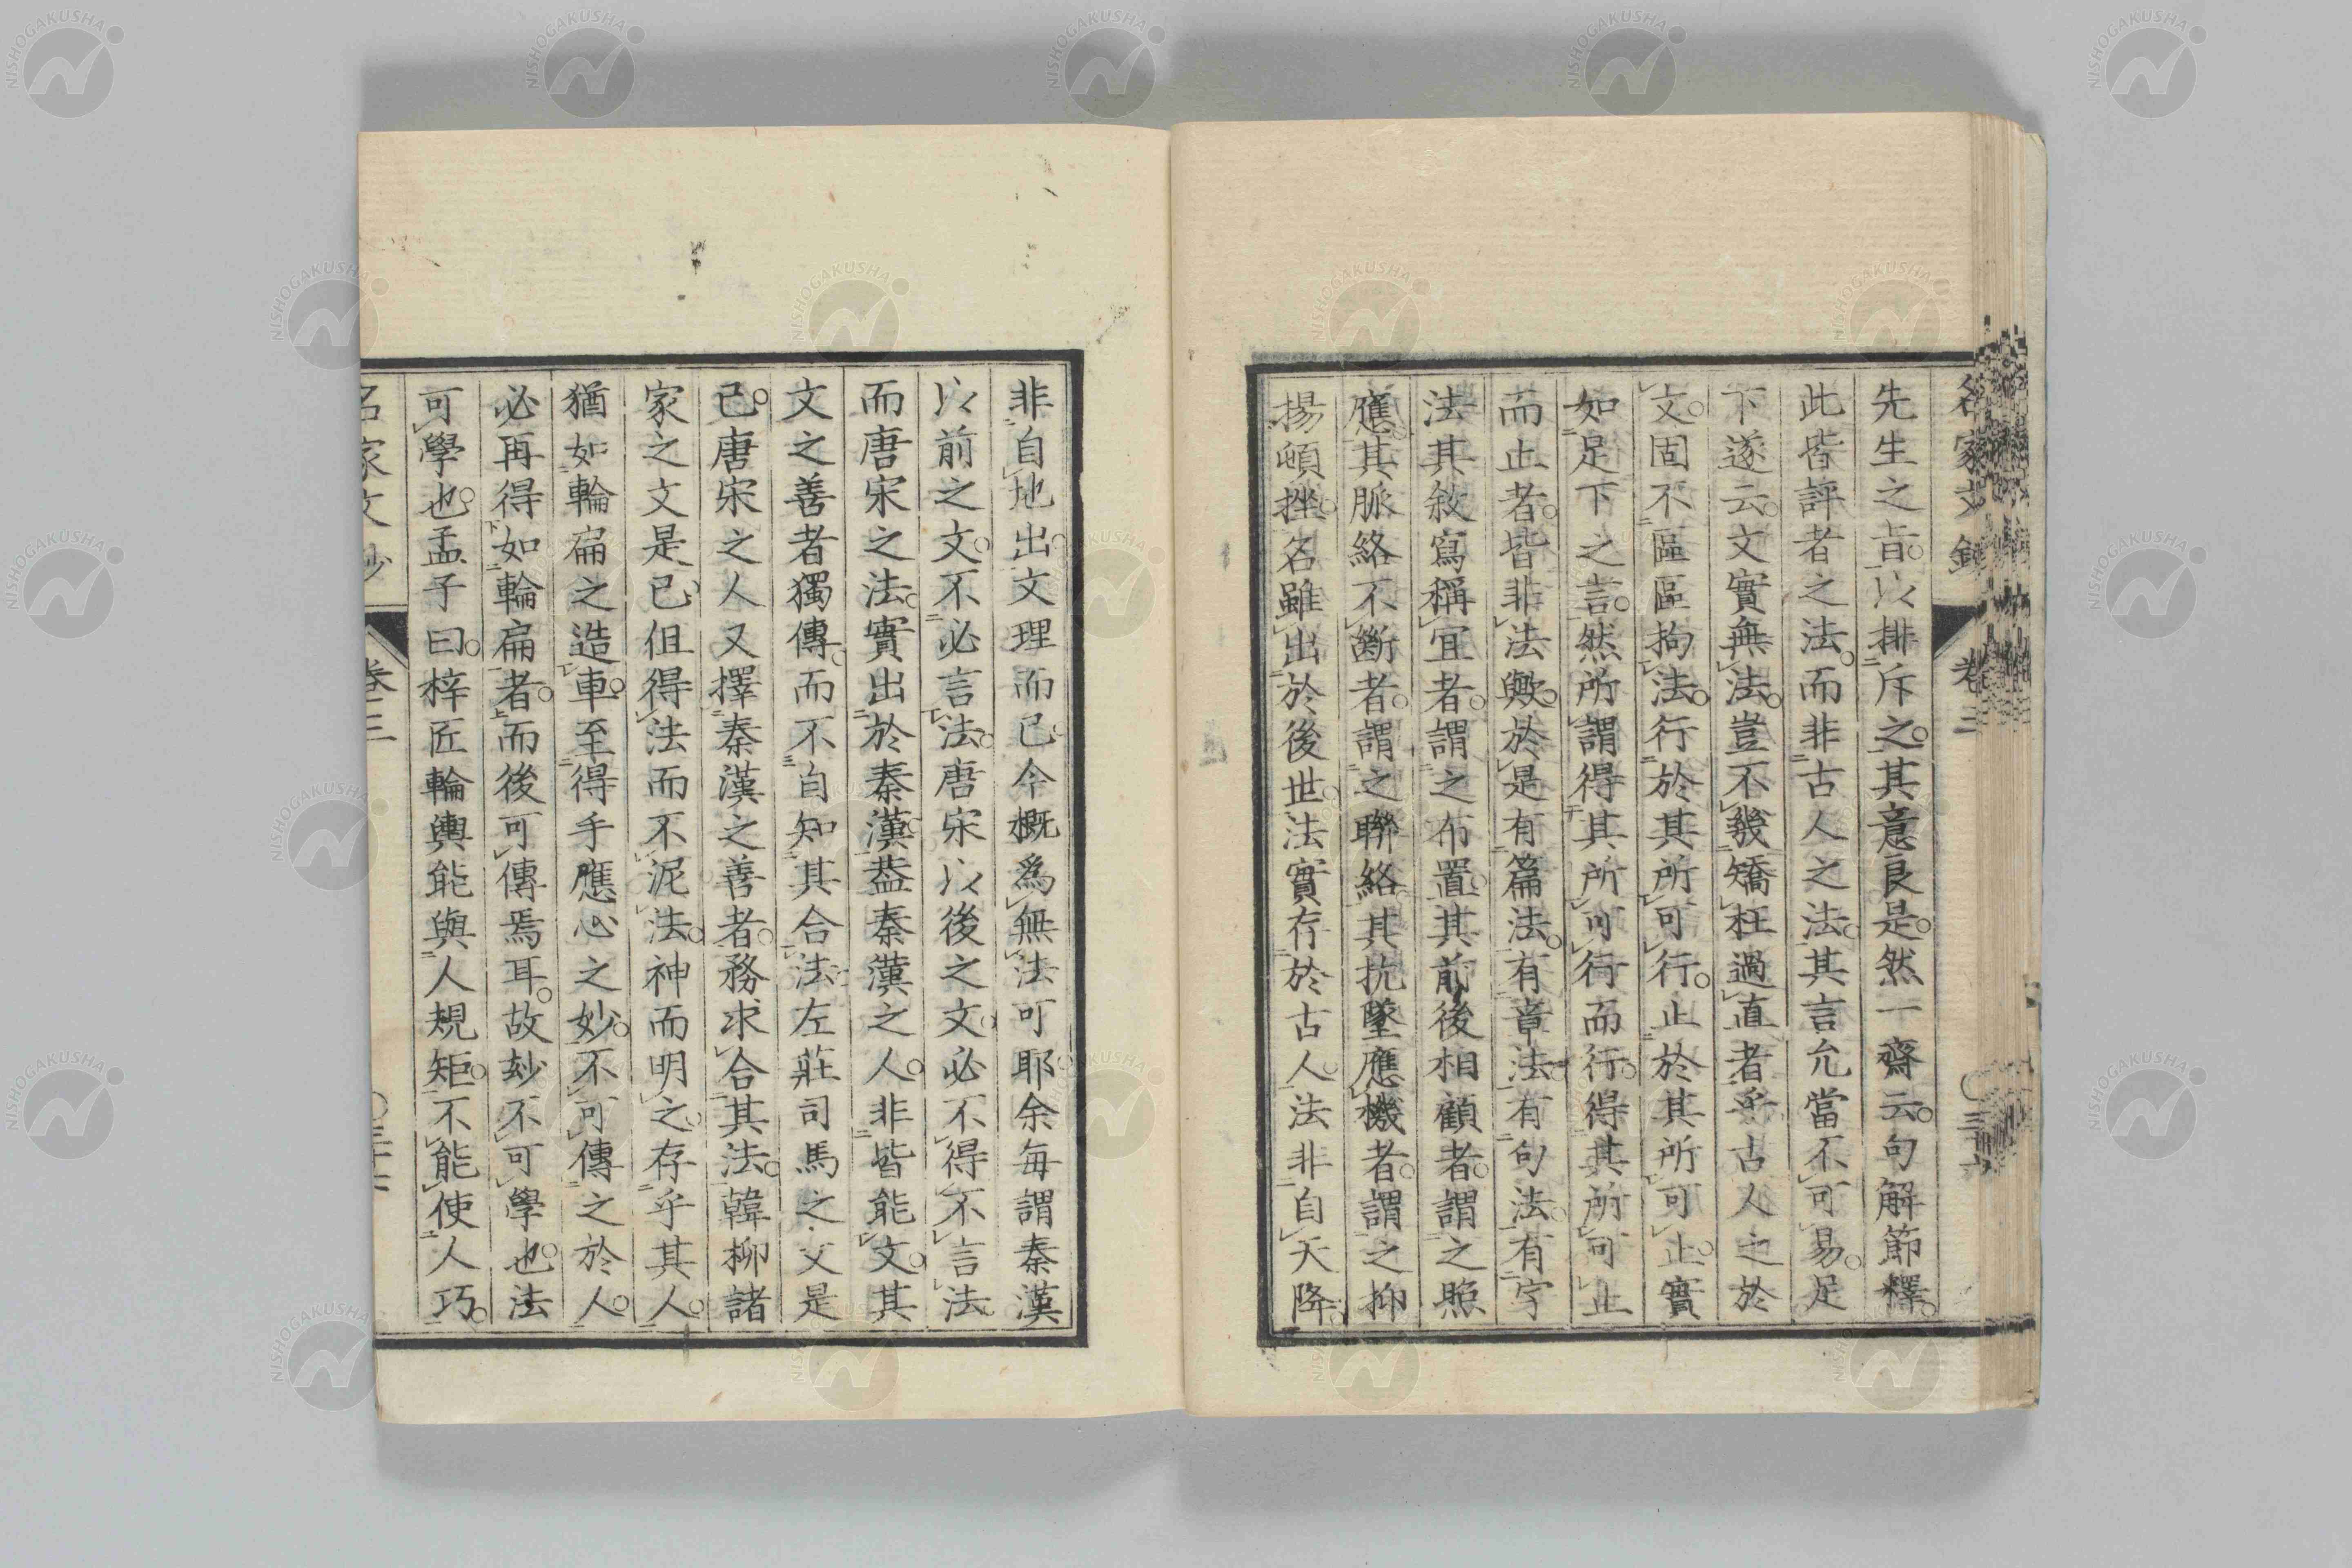 名家文鈔 卷三 〇三十六
先生之旨。以排斥之。其意良是。然一齋云。句解節釋。
此皆評者之法。而非古人之法。其言允當不可易。足
下遂云。文實無法。豈不幾矯枉過直者乎。古人之於
文。固不區區拘法。行於其所可行。止於其所可止。實
如足下之言。然所謂得其所可行而行。得其所可止
而止者。皆非法歟。於是有篇法。有章法。有句法。有字
法。其敘寫稱宜者。謂之布置。其前後相顧者。謂之照
應。其脈絡不斷者。謂之聯絡。其抗墜應機者。謂之抑
揚頓挫。名雖出於後世。法實存於古人。法非自天降。
非自地出。文理而已。今概爲無法可耶。余每謂秦漢
以前之文。不必言法。唐宋以後之文。必不得不言法。
而唐宋之法。實出於秦漢。蓋秦漢之人。非皆能文。其
文之善者獨傳。而不自知其合法。左莊司馬之文是
已。唐宋之人又擇秦漢之善者。務求合其法。韓柳諸
家之文是已。但得法而不泥法。神而明之。存乎其人。
猶如輪扁之造車。至得手應心之妙。不可傳之於人。
必再得如輪扁者。而後可傳焉耳。故玅不可學也。法
可學也。孟子曰。梓匠輪輿能與人規矩。不能使人巧。
名家文鈔 卷三
NISHOGAKUSHA